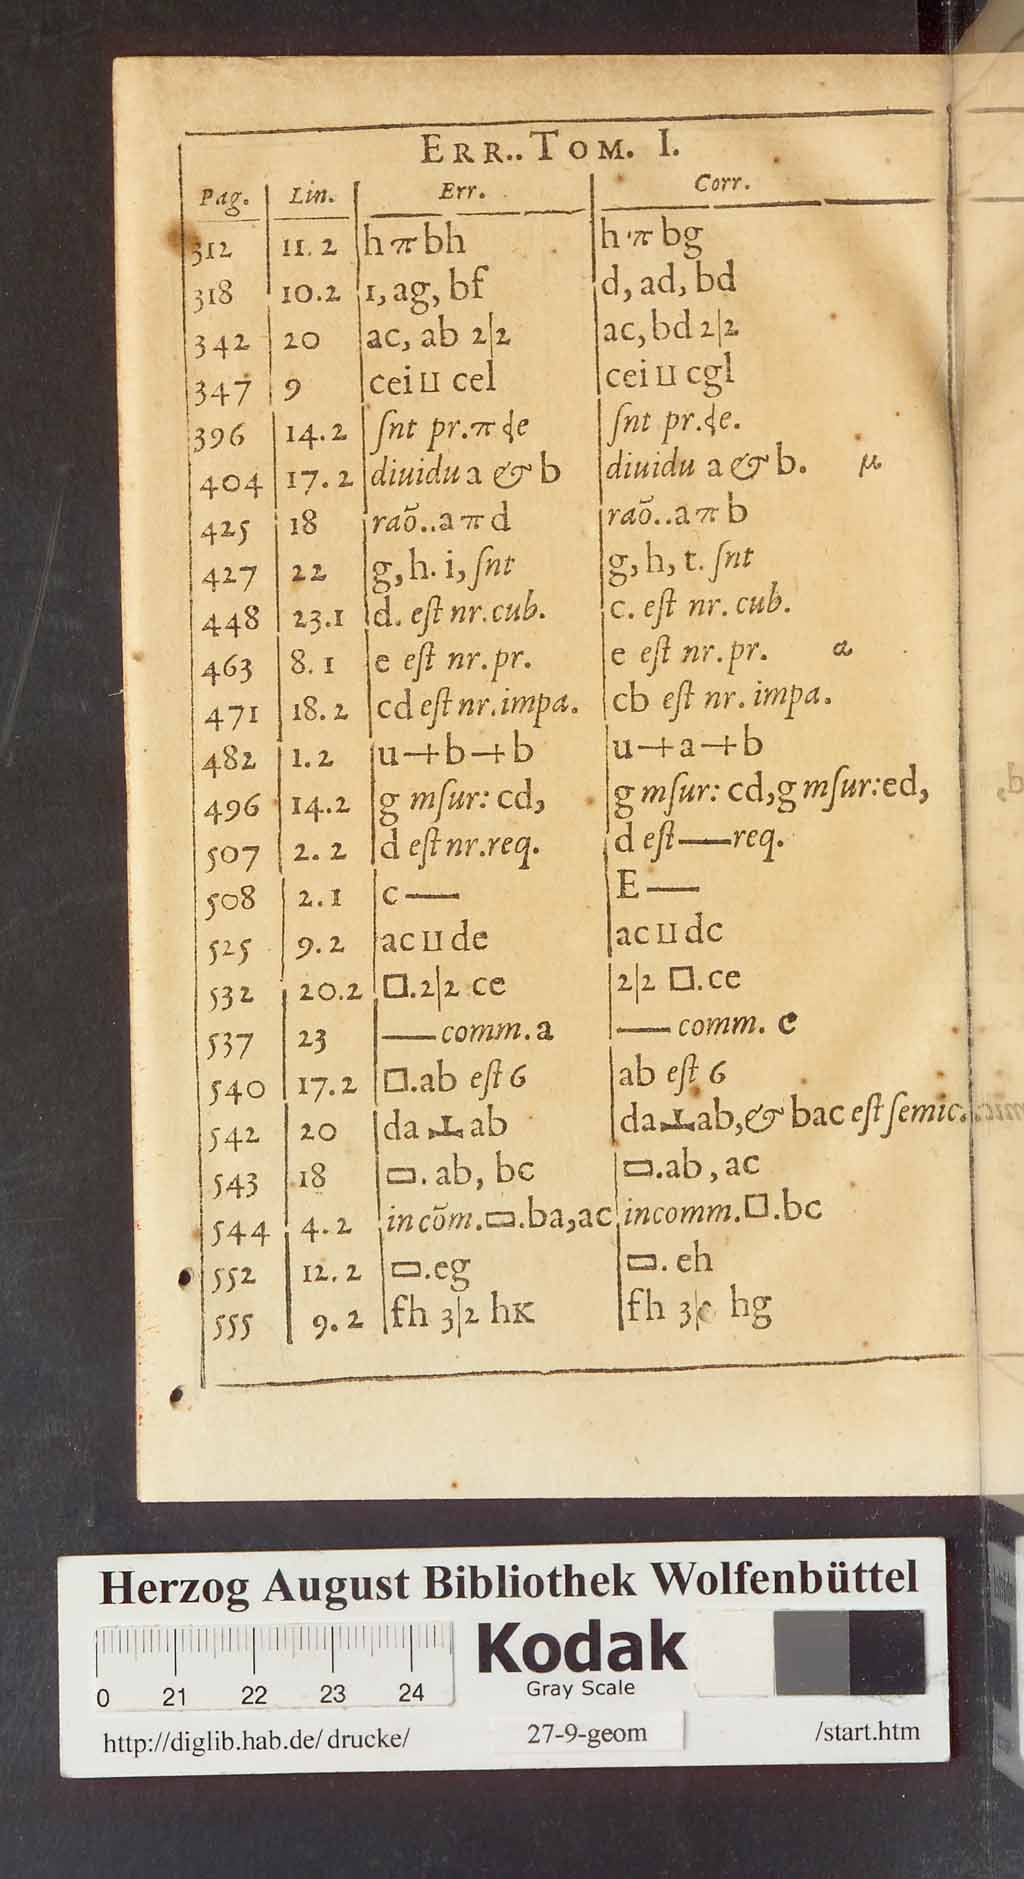 ERR.. TOM. I.
Pag. Lin. Err. Corr.
312 11. 2 h π bh h π bg
318 10. 2 1, ag, bf d, ad, bd
342 20 ac, ab 2|2 ac, bd 2|2
347 9 cei ⊔ cel cei ⊔ cgl
396 14. 2 ſnt pr. π ɖe ſnt pr. ɖe.
404 17. 2 diuidu a & b diuidu a & b. μ
425 18 raõ.. a π d raõ.. a π b
427 22 g, h. i, ſnt g, h, t. ſnt
448 23. 1 d. eſt nr. cub. c. eſt nr. cub.
463 8. 1 e eſt nr. pr. e eſt nr. pr. a
471 18. 2 cd eſt nr. impa. cb eſt nr. impa.
482 1. 2 u + b + b u + a + b
496 14. 2 g mſur: cd, g mſur: cd, g mſur: ed,
507 2. 2 d eſt nr. req. d eſt — req.
508 2. 1 c — E —
525 9. 2 ac ⊔ de ac ⊔ dc
532 20. 2 □. 2|2 ce 2|2 □. ce
537 23 — comm. a — comm. e
540 17. 2 □. ab eſt 6 ab eſt 6
542 20 da ⊥ ab da ⊥ ab, & bac eſt ſemic.
543 18 ▭. ab, bc ▭. ab, ac
544 4. 2 incõm. ▭. ba, ac incomm. □. bc
552 12. 2 ▭. eg ▭. eh
555 9. 2 fh 3|2 hK fh 3| hg
Herzog August Bibliothek Wolfenbüttel
Kodak
Gray Scale
0 21 22 23 24
http://diglib.hab.de/drucke/ 27-9-geom /start.htm